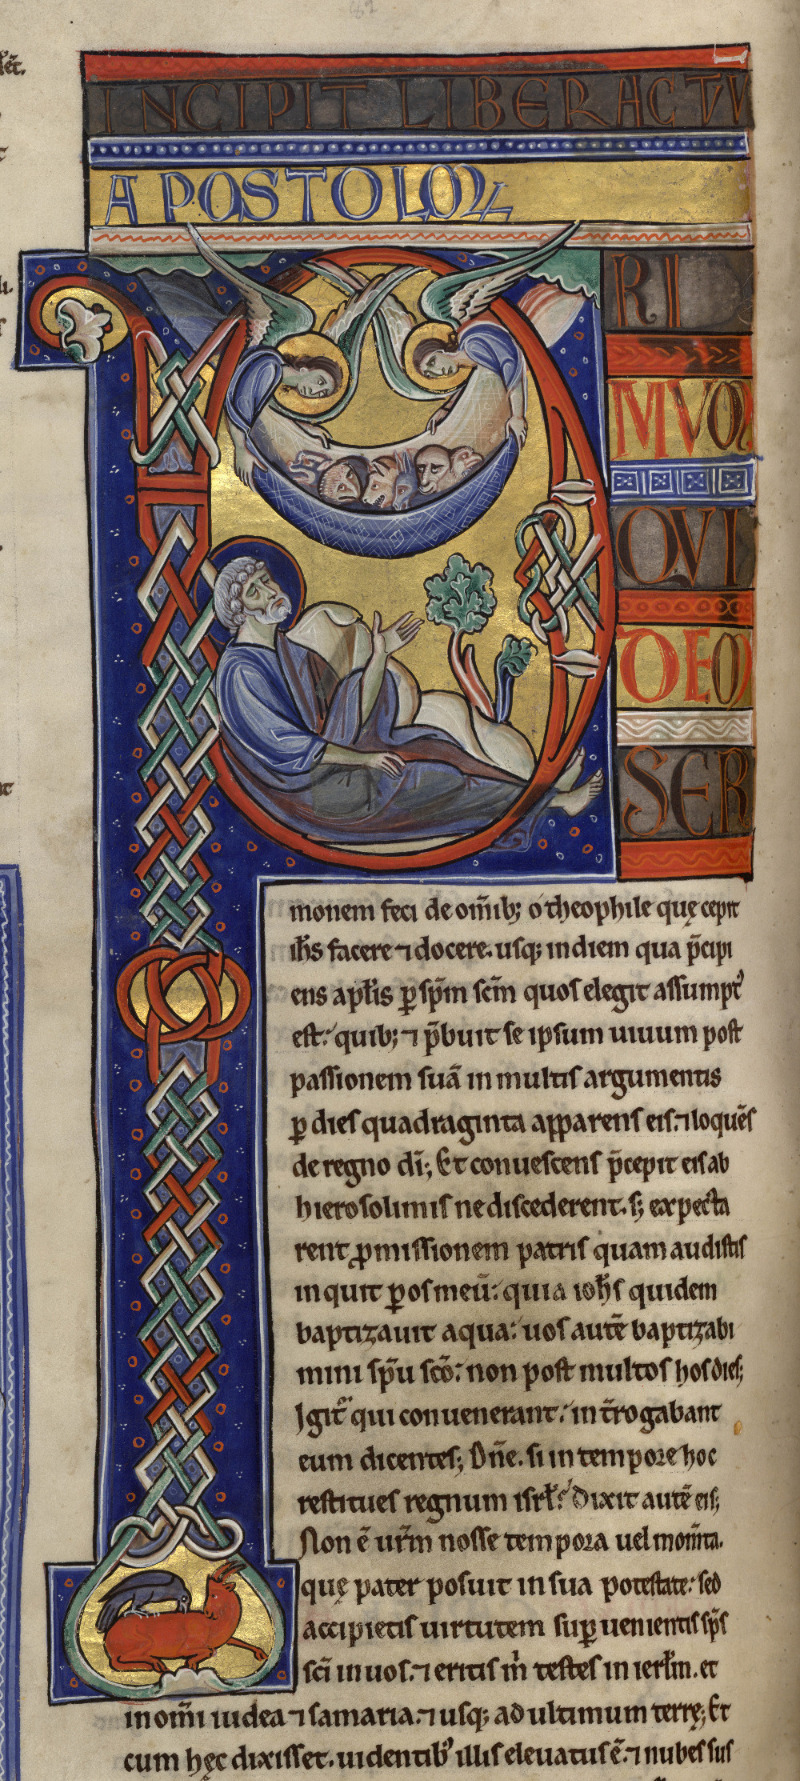 INCIPIT LIBER ACTVV
APOSTOLOꝜ
RI
MVOM
QVI
DEOM
SER
monem feci de om̄ib; o theophile quę cepit
ih̄s facere ⁊ docere. usq; in diem qua p̄cipi
ens apl̄is ꝑ sp̄m sc̄m quos elegit assumpt᾿
est. quib; ⁊ p̄buit se ipsum uiuum post
passionem suā in multis argumentis
ꝑ dies quadraginta apparens eis. ⁊ loquēs
de regno dī; Et conuescens p̄cepit eis ab
hierosolimis ne discederent. s; expecta
rent ꝓmissionem patris quam audistis
inquit ꝑ os meū. quia ioh̄s quidem
baptizauit aqua. uos autē baptizabi
mini sp̄u sc̄o. non post multos hos dies;
Igit᾿ qui conuenerant. int̄rogabant
eum dicentes; Dn̄e. si in tempore hoc
restitues regnum isrł? Dixit autē eis;
Non ē ur̄m nosse tempora uel mom̄ta.
quę pater posuit in sua potestate. sed
accipietis uirtutem suꝑuenientis sp̄s
sc̄i in uos. ⁊ eritis m̄ testes in ierłm. et
in om̄i iudea ⁊ samaria. ⁊ usq; ad ultimum terrę; Et
cum hęc dixisset. uidentib᾿ illis eleuatus ē. ⁊ nubes sus